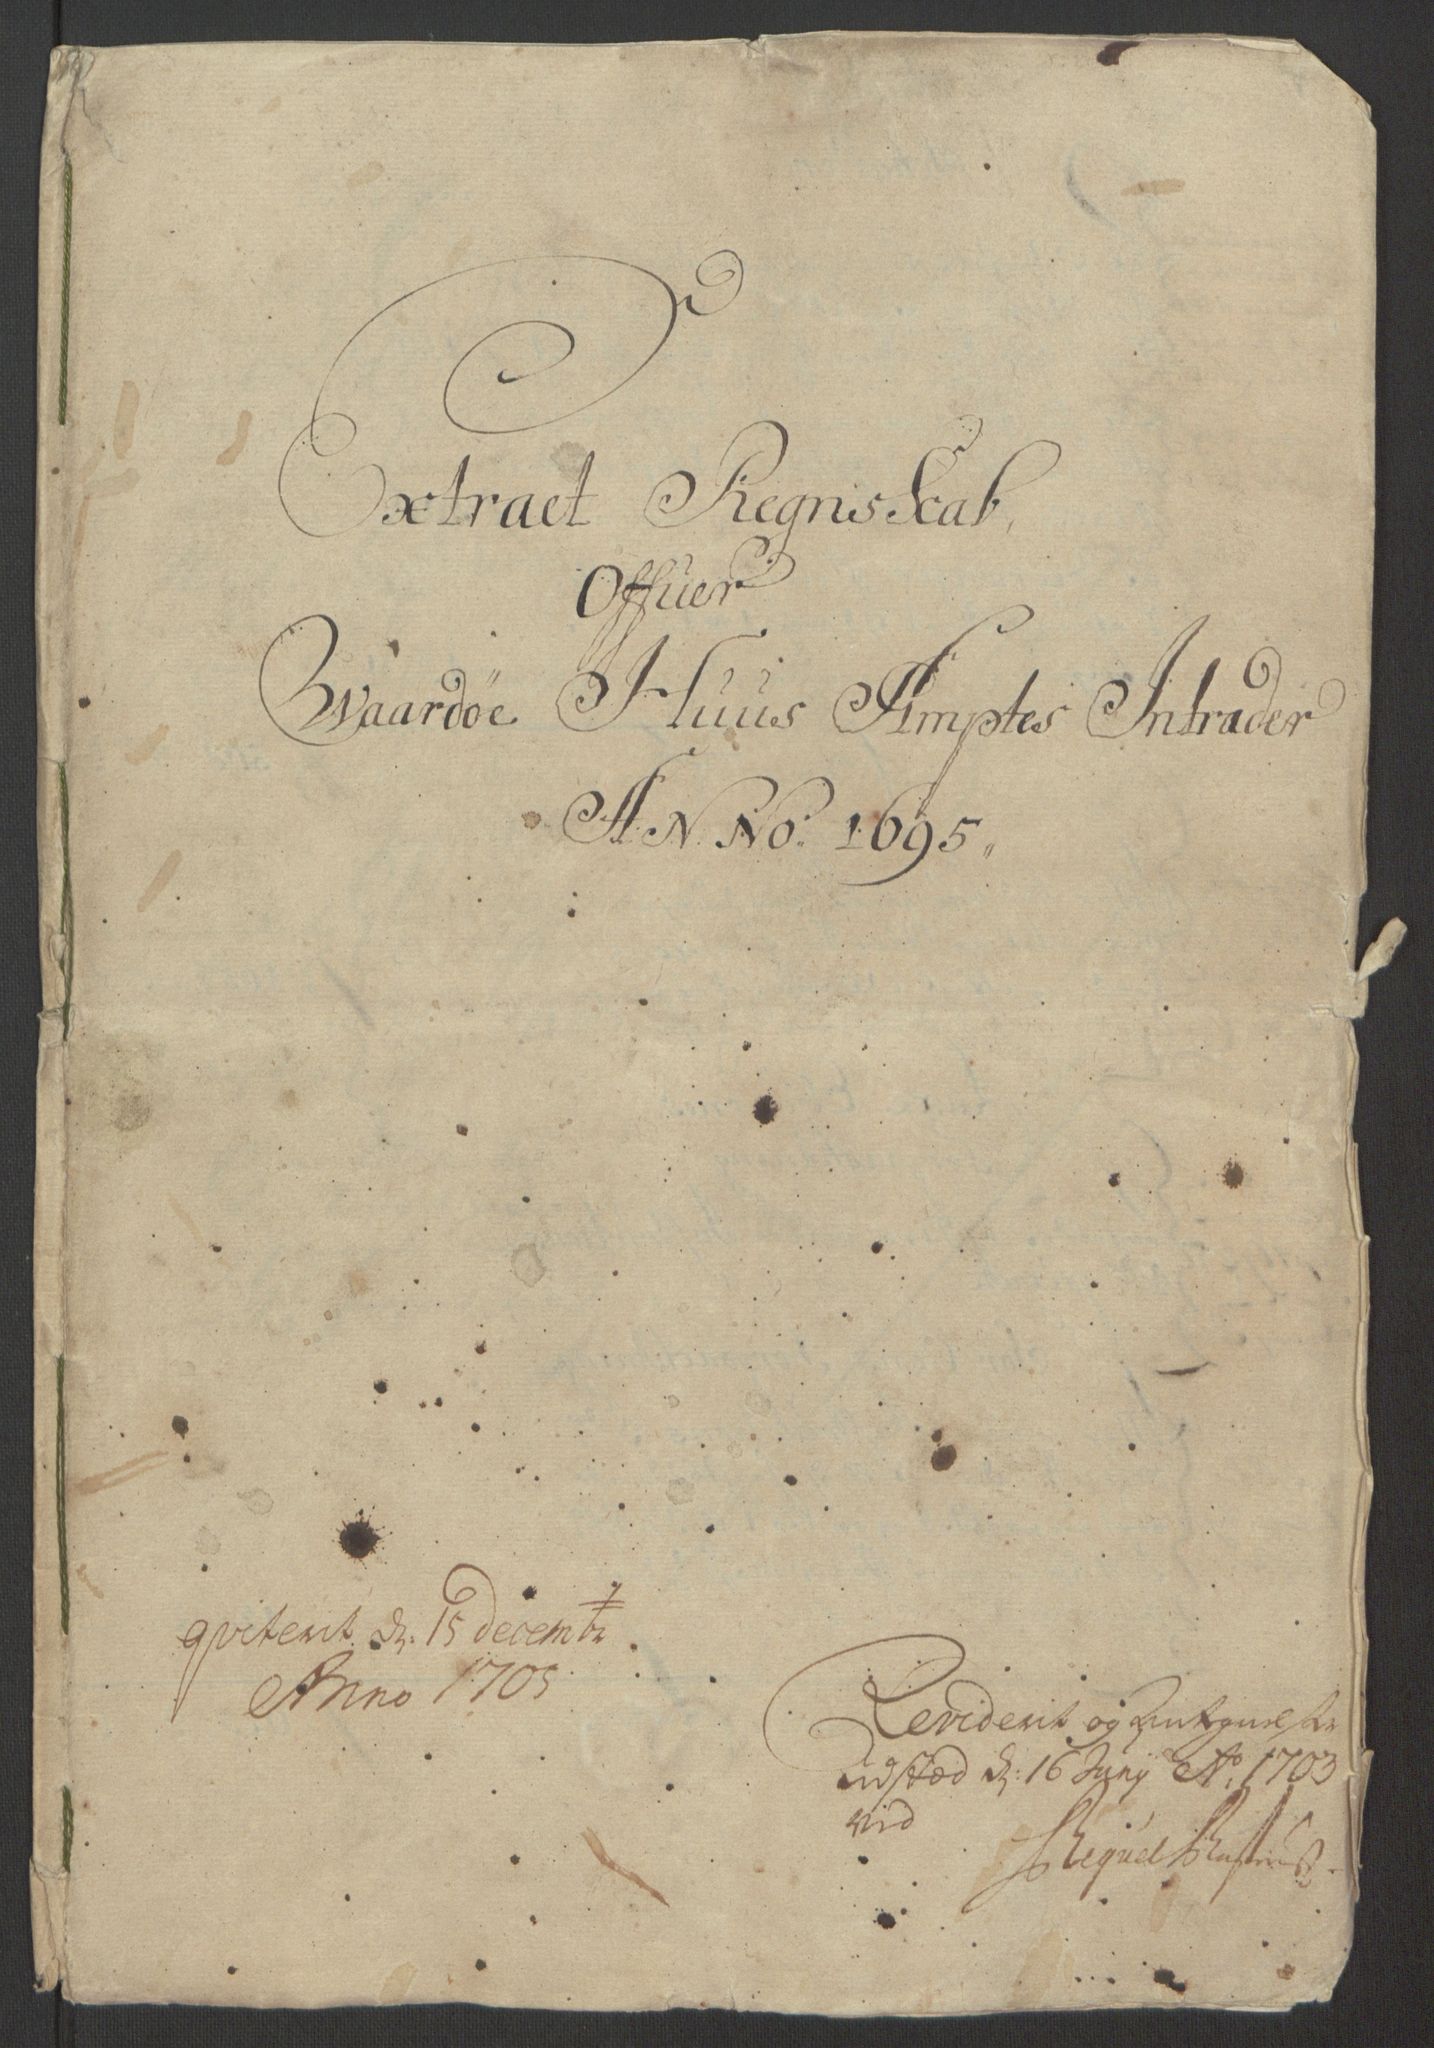 Extract Regnsskab,
Offuer
Waardöe Huus Ampts Intrader
ANNo. 1695,,
qviterit d: 15 decembr
Anno 1705
Reviderit og
udsted d: 16 Juny Ao. 1703
vid